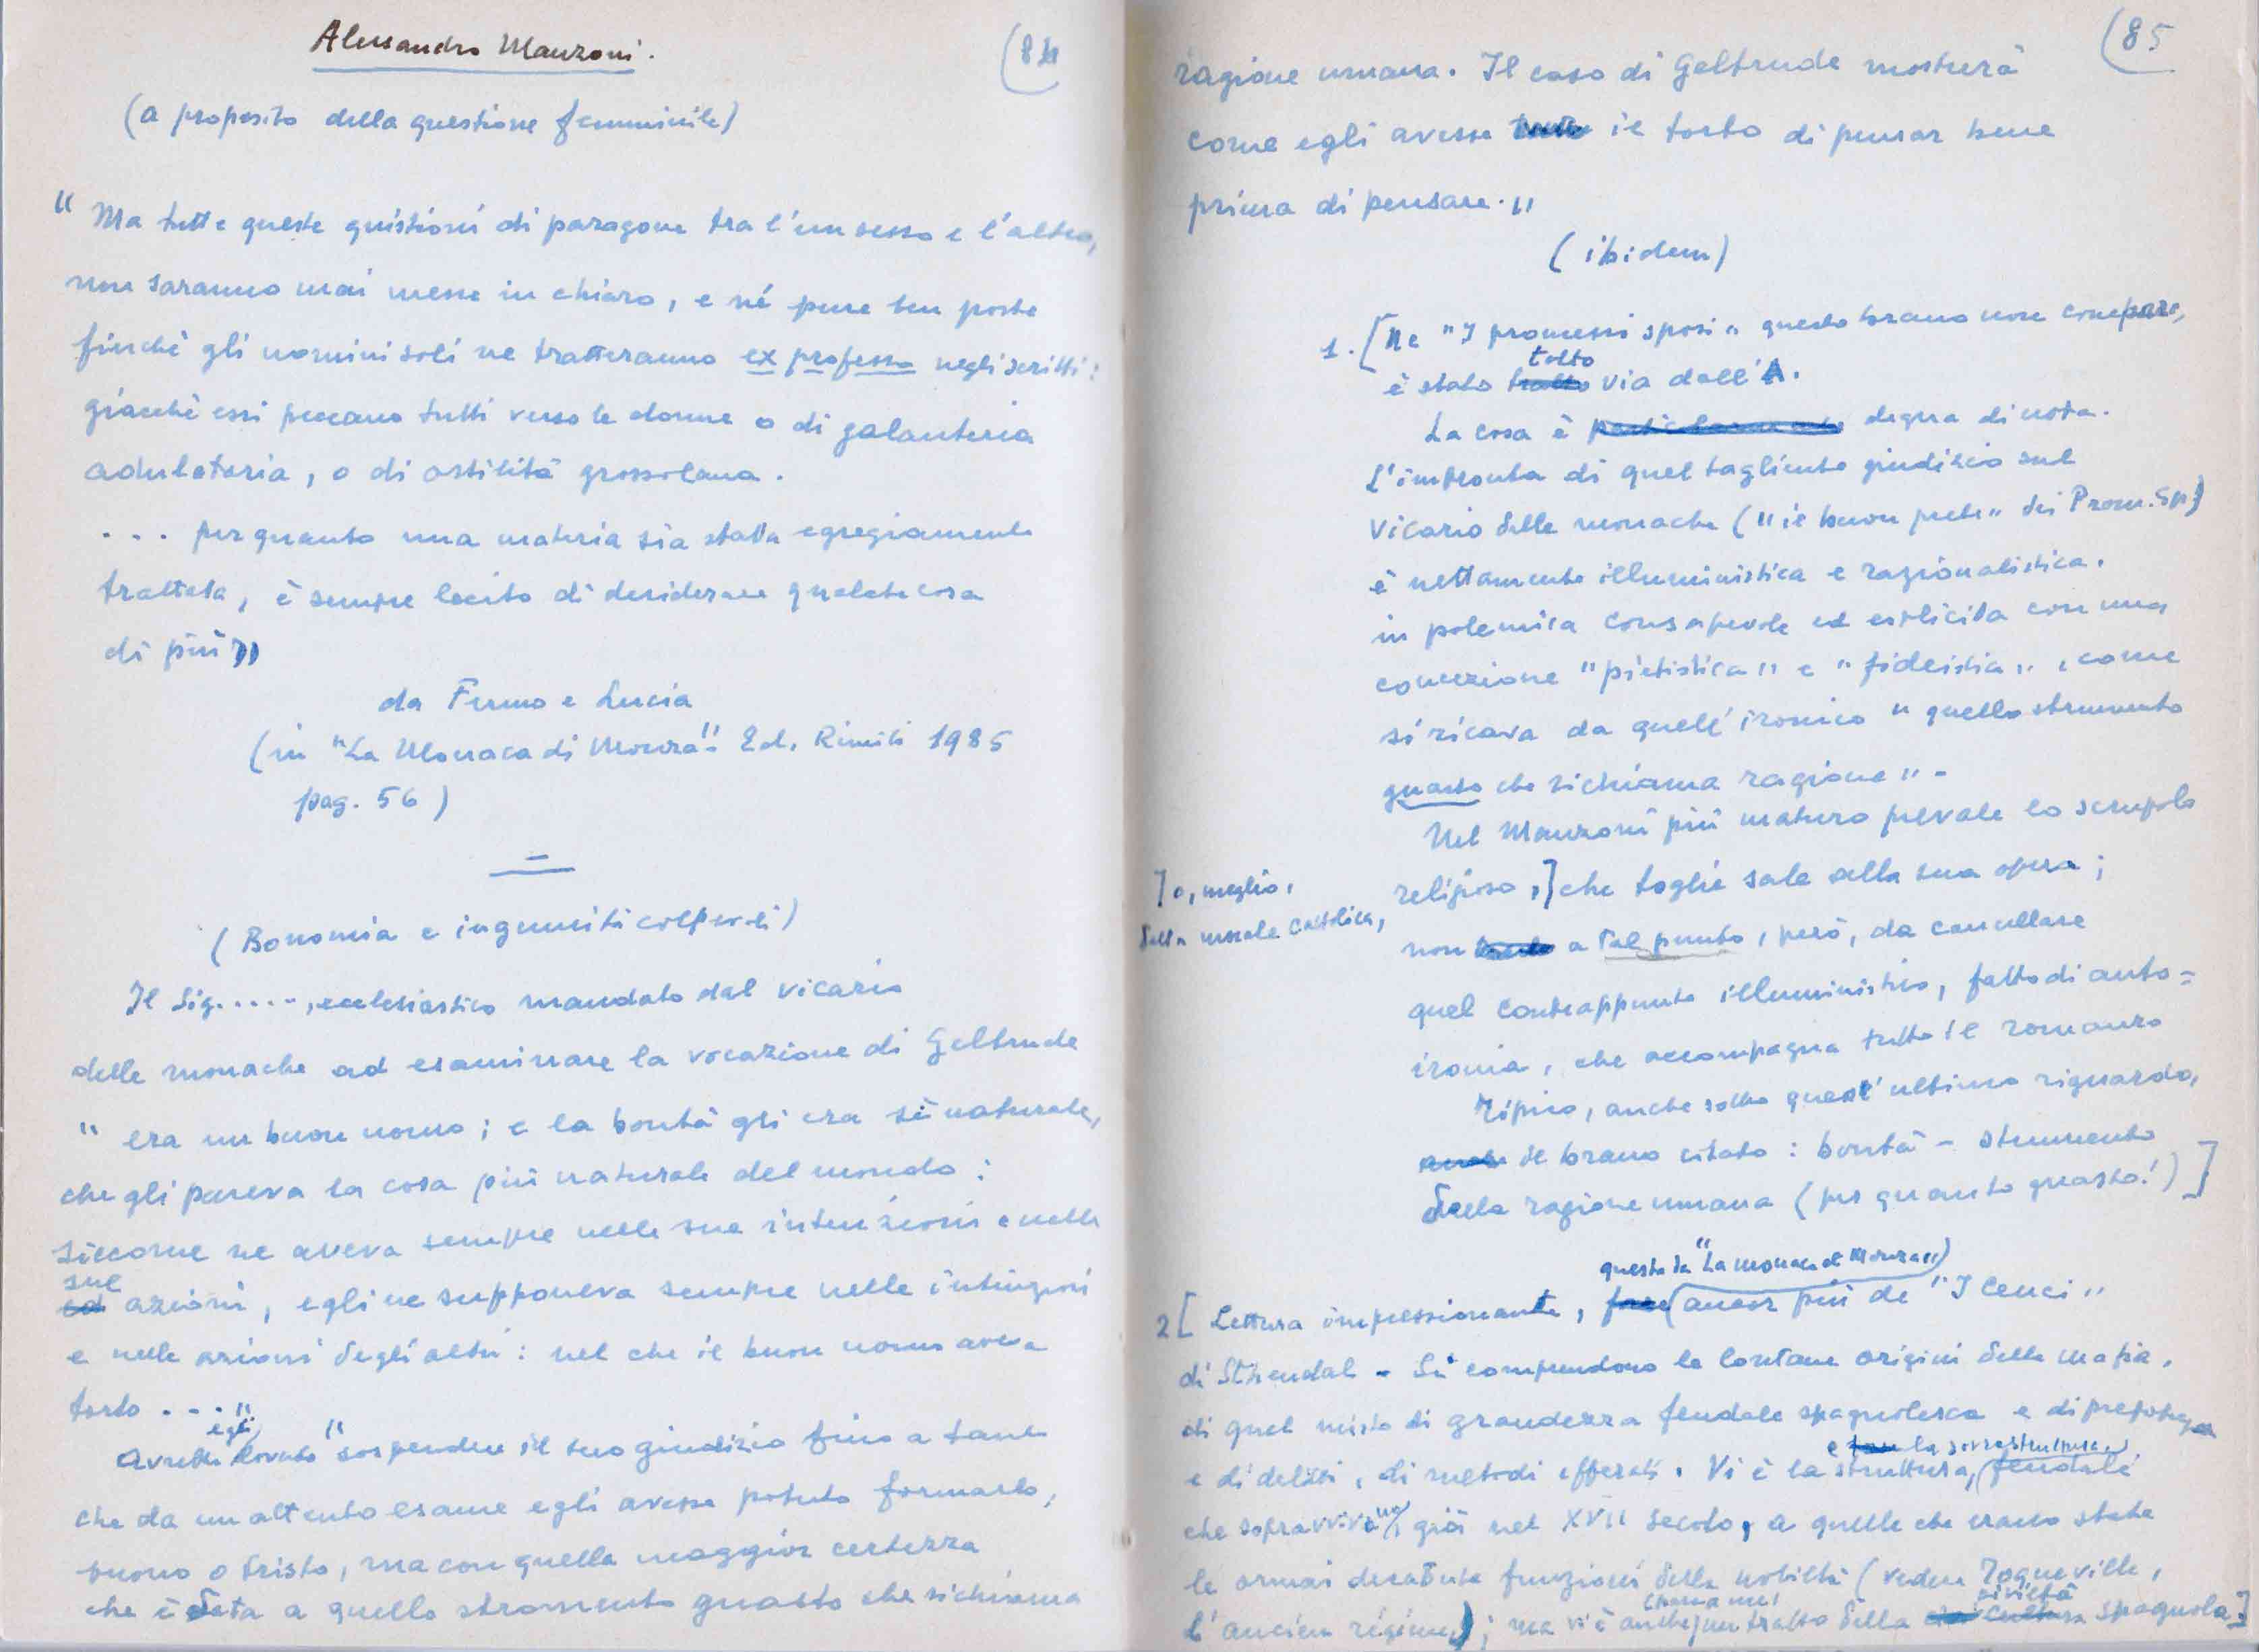 Alessandro Manzoni.
(84
(a proposito della questione femminile)
" Ma tutte queste quistioni di paragone tra l'un sesso e l'altro,
non saranno mai messe in chiaro, e né pure ben poste
finchè gli uomini soli ne tratteranno ex professo negli scritti:
giacchè essi peccano tutti verso le donne o di galanteria
adulatoria, o di ostilità grossolana.
... per quanto una materia sia stata egregiamente
trattata, è sempre lecito di desiderare qualche cosa
di più"
da Fermo e Lucia
(in "La Monaca di Monza": Ed. 1985
pag. 56)
(Bonomia e ingenuità colpevoli)
Il Sig....., ecclesiastico mandato dal vicario
delle monache ad esaminare la vocazione di Geltrude
" era un buon uomo; e la bontà gli era sì naturale,
che gli pareva la cosa più naturale del mondo:
siccome ne aveva sempre nelle sue intenzioni e nelle
sue azioni, egli ne supponeva sempre nelle intenzioni
e nelle azioni degli altri: nel che il buon uomo aveva
torto ..."
Avrebbe egli dovuto "sospendere il suo giudizio fino a tanto
che da un attento esame egli avesse potuto formarlo,
buono o tristo, ma con quella maggior certezza
che è data a quello stromento guasto che si chiama
(85
ragione umana. Il caso di Geltrude mostrerà
come egli avesse il torto di pensar bene
prima di pensare."
(ibidem)
1. [Ne "I promessi sposi" questo brano non compare,
è stato tolto via dall'A.
La cosa è degna di nota.
L'impronta di quel tagliente giudizio sul
Vicario delle monache ("il buon prete" dei Prom. Sp.)
è nettamente illuministica e razionalistica.
in polemica consapevole ed esplicita con una
concezione "pietistica" e "fideistica", come
si ricava da quell'ironico "quello strumento
guasto che si chiama ragione" -
Nel Manzoni più maturo prevale lo scrupolo
religioso,] che toglie sale alla sua opera;
] o, meglio,
della morale cattolica,
non a tal punto, però, da cancellare
quel contrappunto illuministico, fatto di auto=
ironia, che accompagna tutto il romanzo
Tipico, anche sotto quest'ultimo riguardo,
il brano citato: bontà - strumento
della ragione umana (per quanto guasto!)]
2[ Lettura impressionante, questa da "La monaca di Monza") (ancor più de "I Cenci"
di Sthendal - Si comprendono le lontane origini della mafia,
di quel misto di grandezza feudale spagnolesca e di prepotenza
e di delitti, di metodi efferati. Vi è la struttura, e la sovrastruttura, feudale
che sopravvivono, già nel XVII secolo, a quelle che erano state
le ormai decadute funzioni della nobiltà (vedere Toqueville,
l'ancien régime); ma vi è anche, un tratto della civiltà spagnola]